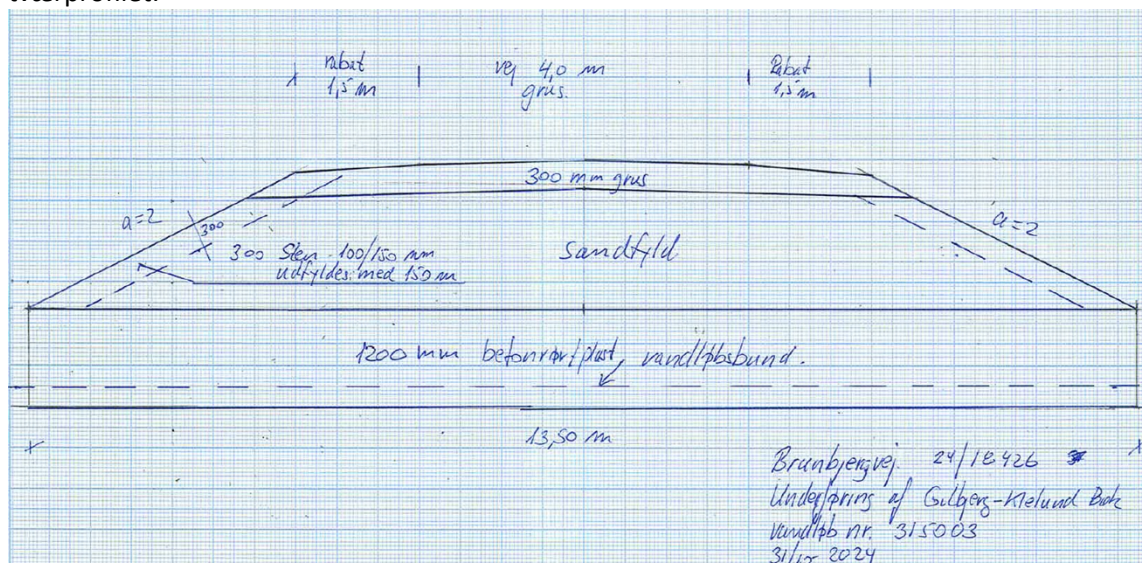 Tværprofilet.
rabat
1,5 m
vej 4,0 m
grus.
Rabat
1,5 m
300 mm grus
a=2
300
a=2
300 Sten 100/150 mm
udfyldes med 150 m
sandfyld
1200 mm betonrør/plast, vandløbsbund.
13,50 m
Brunbjergvej. 24/18426
Underføring af Gilbjerg-Klelund Bæk
vandløb nr. 315003
2024